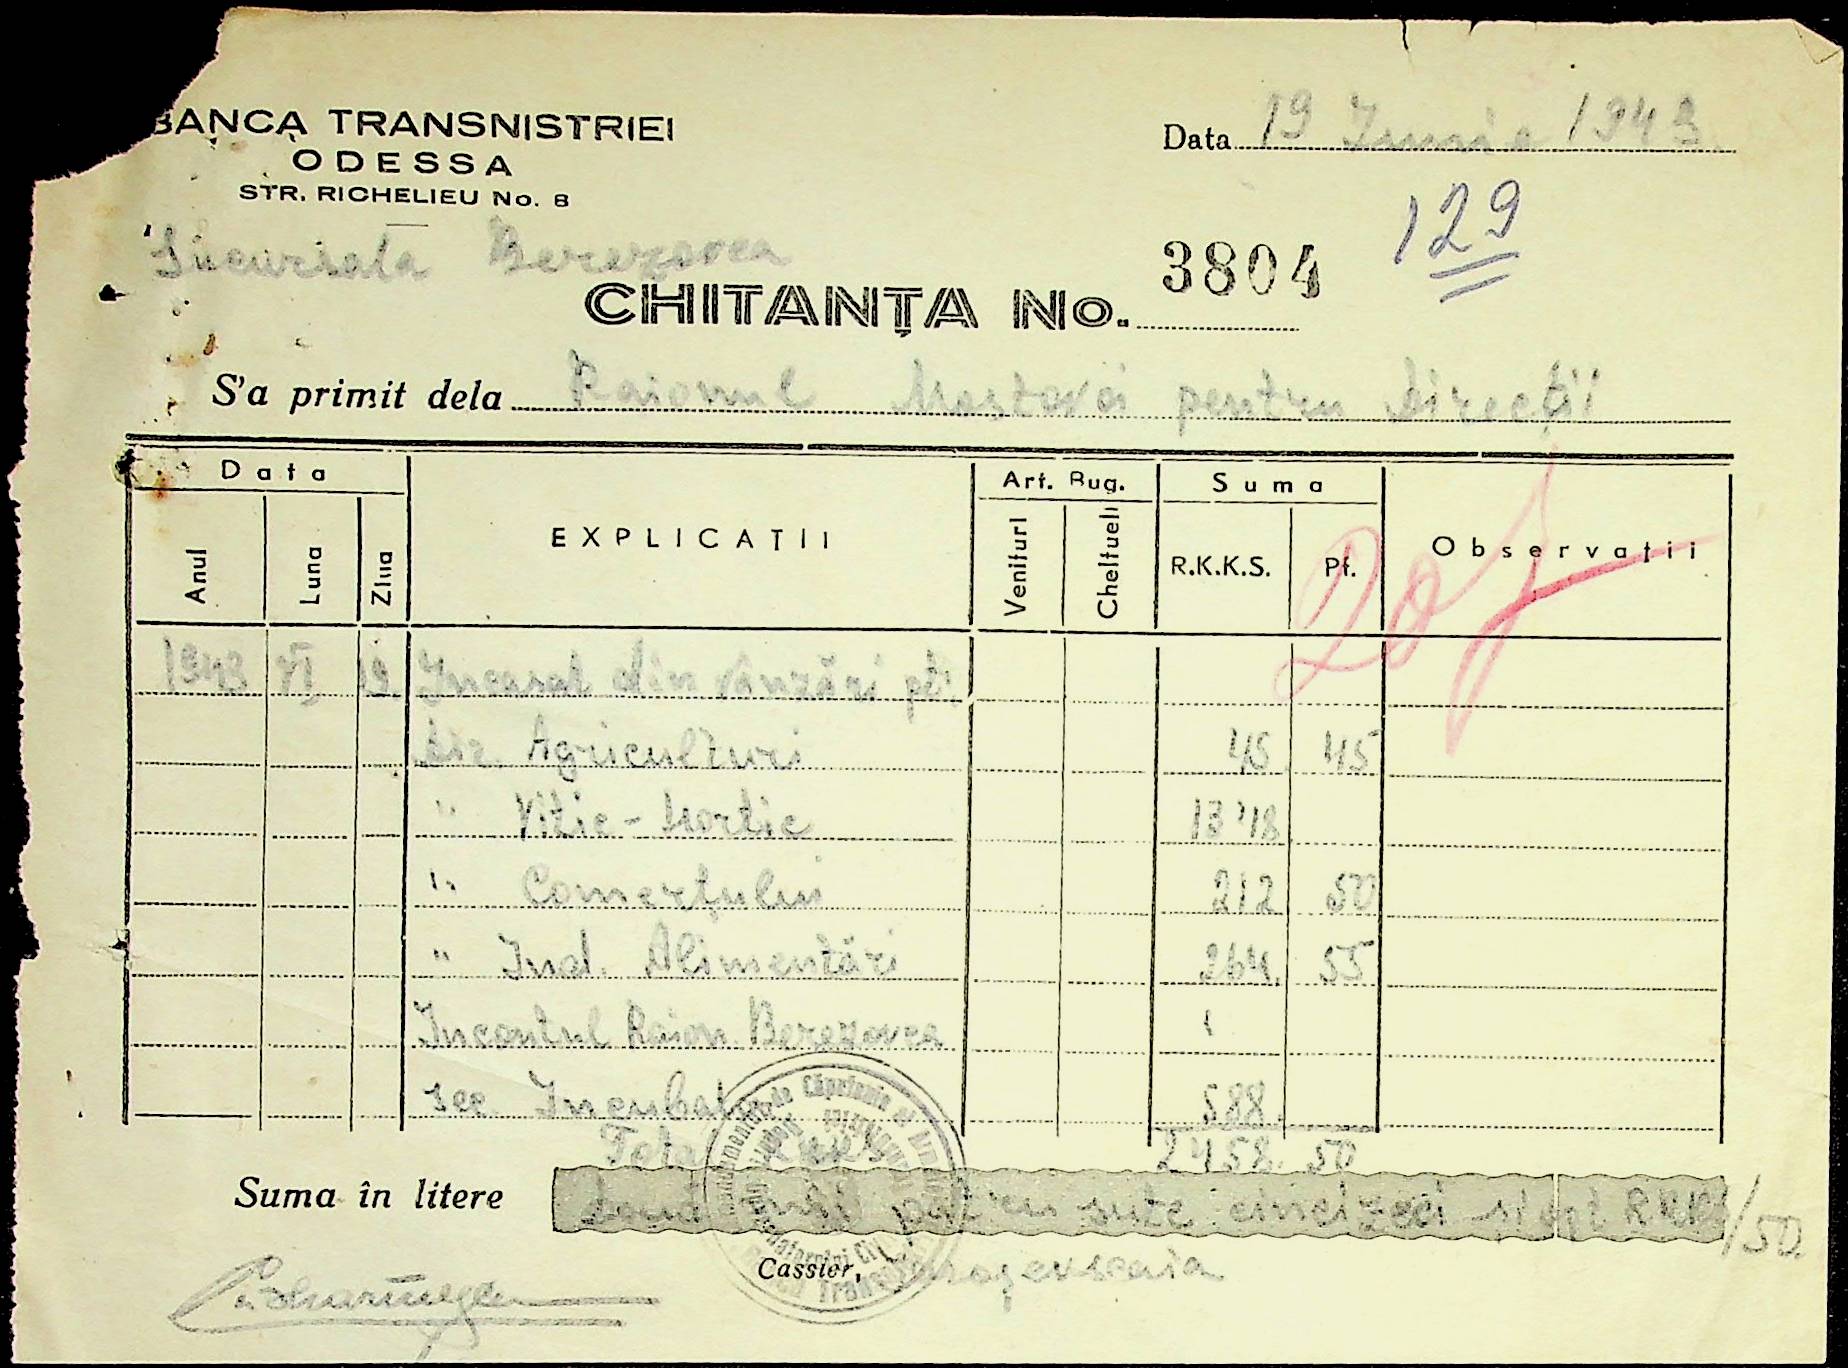 BANCA TRANSNISTRIEI
ODESSA
STR. RICHELIEU No. 8
Data 19 Iunie 1943
129
Sucursala Berezovca
CHITANȚA No. 3804
S'a primit dela Raionul Mostovoi pentru Direcții
Data Art. Bug. Suma
Anul Luna Ziua EXPLICAȚII Venituri Cheltueli R.K.K.S. Pf. Observații
20
1943 VI 19 Incasat din vânzări pt.
Dir. Agriculturi 45 45
" Vitic-Hortic 1348
" Comerțului 212 50
" Ind. Alimentări 264 55
Incontul Raion Berezovca
sec. Incubator 588
Total RKKS 2458 50
Suma în litere Două mii patru sute cincizeci și opt RKKS/50
Cassier,